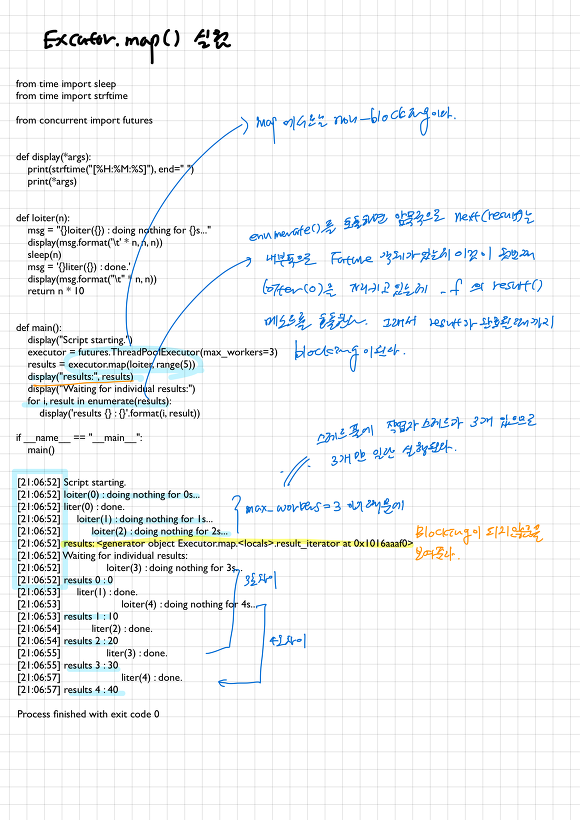 Excutor.map() 실험
from time import sleep
from time import strftime
from concurrent import futures
map 에서는 non-blocking이다.
def display(*args):
print(strftime("[%H:%M:%S]"), end=" ")
print(*args)
def loiter(n):
msg = "{}loiter({}) : doing nothing for {}s..."
display(msg.format('\t' * n, n, n))
sleep(n)
msg = '{}liter({}) : done.'
display(msg.format("\t" * n, n))
return n * 10
enumerate()를 호출하면 암묵적으로 next(result)는
내부적으로 Future 객체가 있는데 이것이
loiter(0)을 가지고 있는데 _f 의 result()
메소드를 호출한다. 그래서 result가 완료될때까지
blocking이 된다.
def main():
display("Script starting.")
executor = futures.ThreadPoolExecutor(max_workers=3)
results = executor.map(loiter, range(5))
display("results:", results)
display("Waiting for individual results:")
for i, result in enumerate(results):
display('results {} : {}'.format(i, result))
if __name__ == "__main__":
main()
스레드 풀에 작업자 스레드가 3개 있으므로
3개만 일단 실행된다.
[21:06:52] Script starting.
[21:06:52] loiter(0) : doing nothing for 0s...
[21:06:52] liter(0) : done.
[21:06:52] loiter(1) : doing nothing for 1s...
[21:06:52] loiter(2) : doing nothing for 2s...
max_workers=3 이기 때문에
[21:06:52] results: <generator object Executor.map.<locals>.result_iterator at 0x1016aaaf0>
blocking이 되지 않음을
보여준다.
[21:06:52] Waiting for individual results:
[21:06:52] loiter(3) : doing nothing for 3s...
[21:06:52] results 0 : 0
3초차이
[21:06:53] liter(1) : done.
[21:06:53] loiter(4) : doing nothing for 4s...
[21:06:53] results 1 : 10
[21:06:54] liter(2) : done.
[21:06:54] results 2 : 20
4초차이
[21:06:55] liter(3) : done.
[21:06:55] results 3 : 30
[21:06:57] liter(4) : done.
[21:06:57] results 4 : 40
Process finished with exit code 0